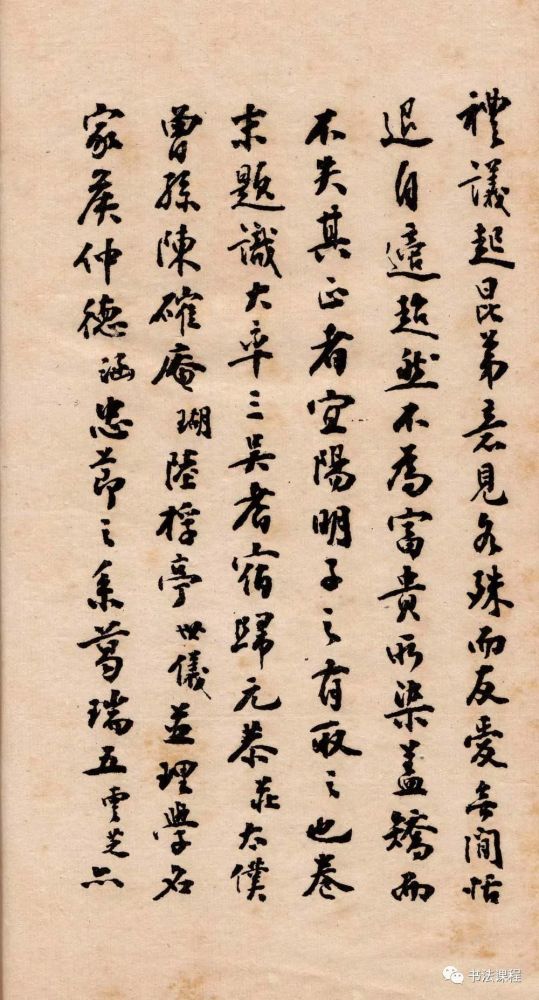 禮議起昆弟意見各殊而友愛無間恬
退自適超然不為富貴所染蓋矯而
不失其正者宜陽明子之有取之也卷
末題識大率三吳耆宿歸元恭莊太僕
曾孫陳確庵瑚陸桴亭世儀並理學名
家侯仲德涵忠節之系葛瑞五雲芝亦
书法课程